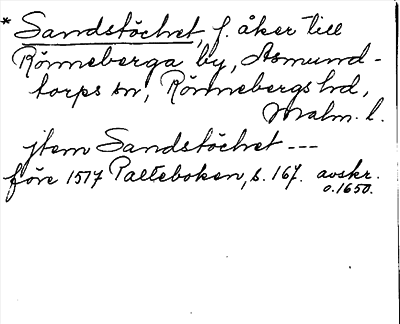 * Sandstöchet, f. åker till
Rönneberga by, Asmund-
torps sn, Rönnebergs hd,
Malm. l.
jtem Sandstöchet ---
före 1517 Palteboken, s. 167. avskr.
o. 1650.